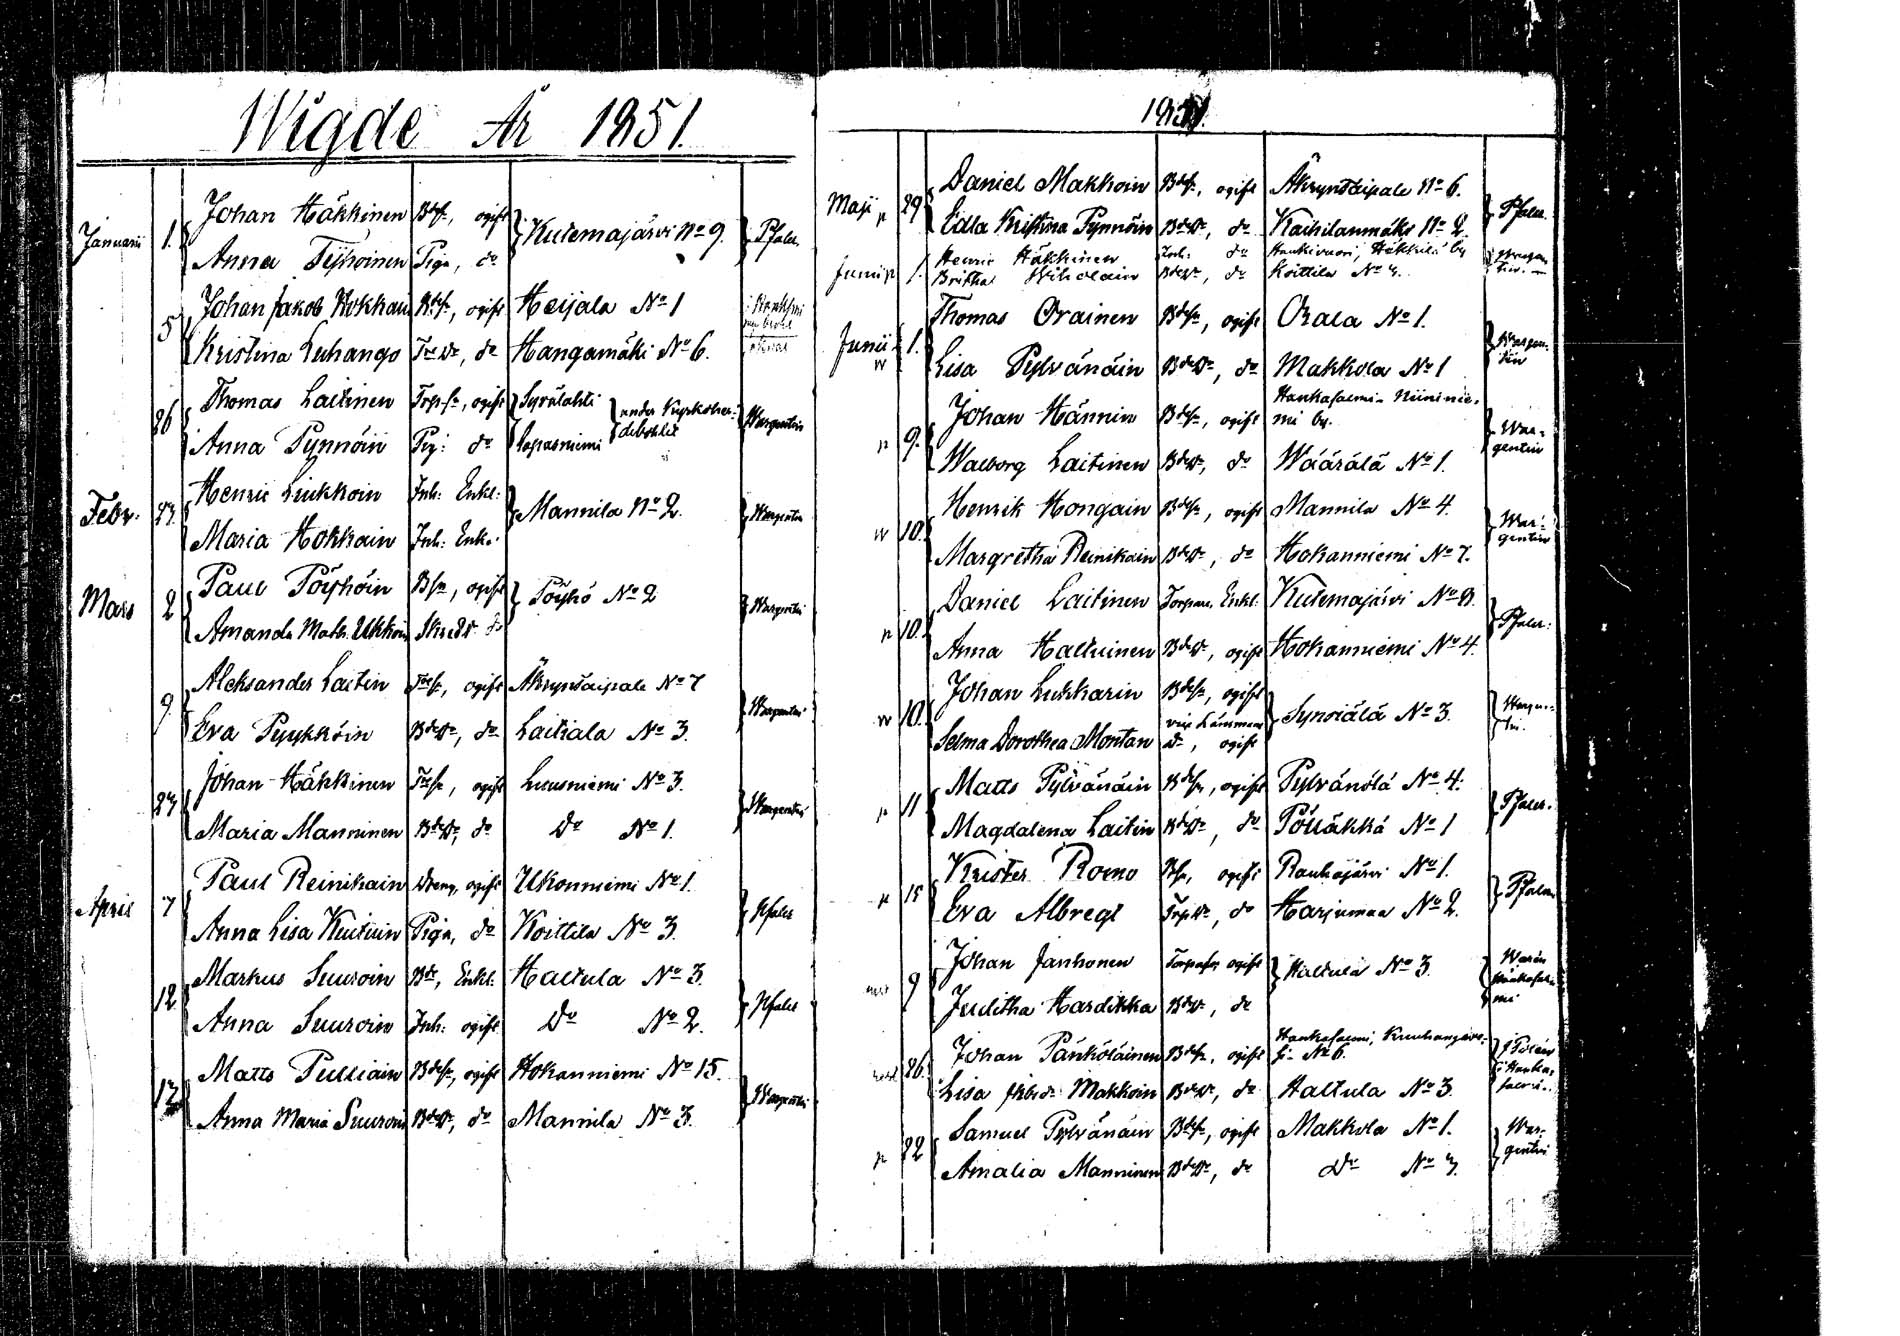 Wigde År 1851.
Januarii 1. Johan Häkkinen Bdesn, ogift Kutemajärvi No 9. Pfaler.
Anna Tyhöinen Piga, do
5 Johan Jakob Hokkain Bdesn, ogift Heijala No 1
Kristina Luhango do Hangamäki No 6.
26 Thomas Laitinen Trp.sn, ogift Syvälahti under Kyrkoher- Wargentin
Anna Pynnöin Pig: do Sopasniemi debohlet
Febr. 23 Henric Liukkoin Inh: Enkl: Mannila No 2. Wargentin
Maria Hokkain Inh: Enka.
Mars 2 Paul Pöyhöin Bsn, ogift Pöyhö No 2 Wargentin
Amanda Math. Ukkoin do
9. Aleksander Laitin ogift Åkrynsaipale No 7 Wargentin
Eva Pyykköin BdeDr, do Laitiala No 3.
23 Johan Häkkinen ogift Luusniemi No 3. Wargentin
Maria Manninen BdeDr, do Do No 1.
April 7 Paul Reinikain Dreng, ogift Ukonniemi No 1. Pfaler
Anna Lisa Kutiain Piga, do Koittila No 3.
12 Markus Suuroin Bde, Enkl: Haltula No 3. Pfaler
Anna Suuroin Inh: ogift Do No 2.
13 Matts Pulliain Bdesn, ogift Hokanniemi No 15. Wargentin
Anna Maria Suuroin BdeDr, do Mannila No 3.
1851.
Maji p 29 Daniel Makkoin Bdesn, ogift Åkrynsaipale No 6. Pfaler.
Edla Kristina Pynnöin BdeDr, do Kaihilanmäki No 2.
Junii p 1. Henric Häkkinen Inh: do Hankivuori, Häkkilä by Wargen-
Britha Wiholain BdeDr, do Koittila No 3. tin.
Junii 1. Thomas Orainen Bdesn, ogift Orala No 1. Wargen-
w Lisa Pylvänäin BdeDr, do Makkola No 1 tin
Hankasalmi Niininie-
p 9. Johan Hännin Bdesn, ogift mi by. War-
Walborg Laitinen BdeDr, do Wäärälä No 1. gentin
w 10. Henrik Hongain Bdesn, ogift Mannila No 4. War-
Margretha Reinikain BdeDr, do Hokanniemi No 7. gentin
p 10. Daniel Laitinen Torpare, Enkl: Kutemajärvi No 8. Pfaler:
Anna Haltuinen BdeDr, ogift Hokanniemi No 4.
w 10. Johan Lukkarin Bdesn, ogift Synsiälä No 3. Wargen-
Selma Dorothea Montan Dr, ogift tin.
p 11 Matts Pylvänäin Bdesn, ogift Pylvänälä No 4. Pfaler.
Magdalena Laitin BdeDr, do Pölläkkä No 1
p 15 Krister Romo Bsn, ogift Rauhajärvi No 1. Pfaler
Eva Albregt TrpDr, do Harjumaa No 2.
9 Johan Janhonen Torparesn, ogift Haltula No 3. Warén
Juditha Hardikka BdeDr, do Hankasal-
mi
Hankasalmi, Kuuhangave-
26. Johan Pänköläinen Bdesn, ogift si No 6. Polén
Lisa Makkoin BdeDr, do Haltula No 3. i Hanka-
salmi.
p 22 Samuel Pylvänäin Bdesn, ogift Makkola No 1. War-
Amalia Manninen BdeDr, do Do No 3. gentin